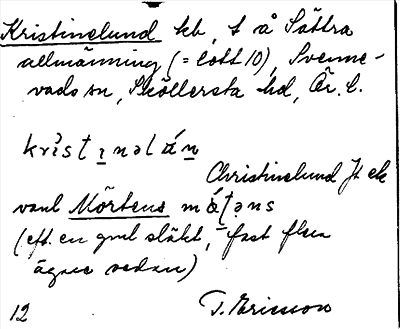 Kristinelund hb, t å Sättra
allmänning (= lott 10), Svenne-
vads sn, Sköllersta hd, Ör. l.
kristinəlún
Christinelund Jt ek
vanl Mörtens mǿtəns
(eft. en gml släkt, fast flera
ägare sedan)
12 T. Ericsson